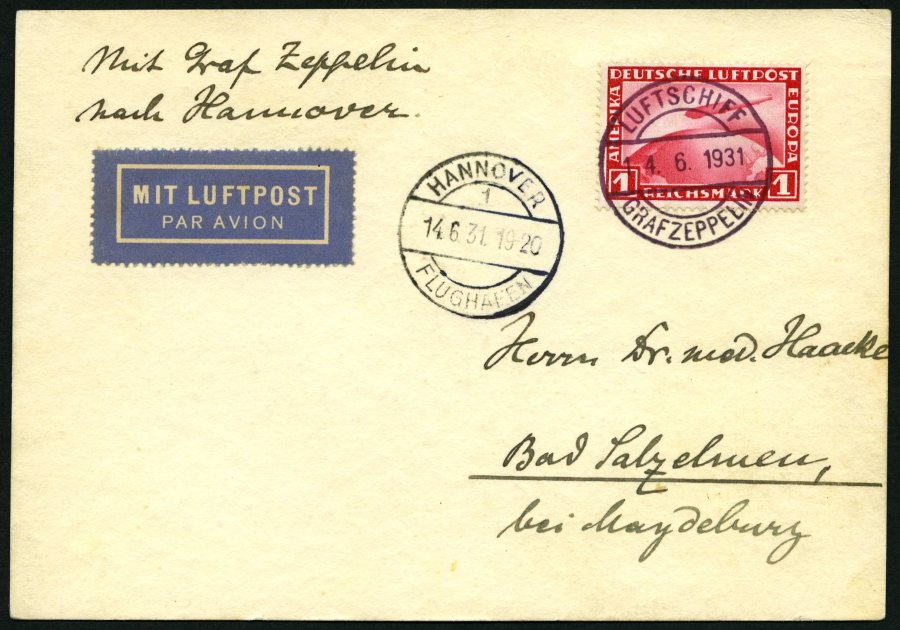 Mit Graf Zeppelin
nach Hannover.
MIT LUFTPOST
PAR AVION
HANNOVER
1
14.6.31. 19-20
FLUGHAFEN
DEUTSCHE LUFTPOST
AMERIKA
EUROPA
1 REICHSMARK 1
LUFTSCHIFF
14. 6. 1931
GRAF ZEPPELIN
Herrn Dr. med. Haacke
Bad Salzelmen,
bei Magdeburg